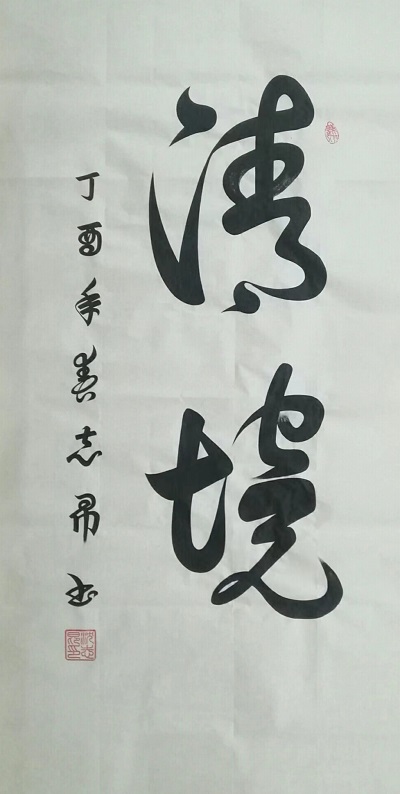 清境
丁酉年春志昂书